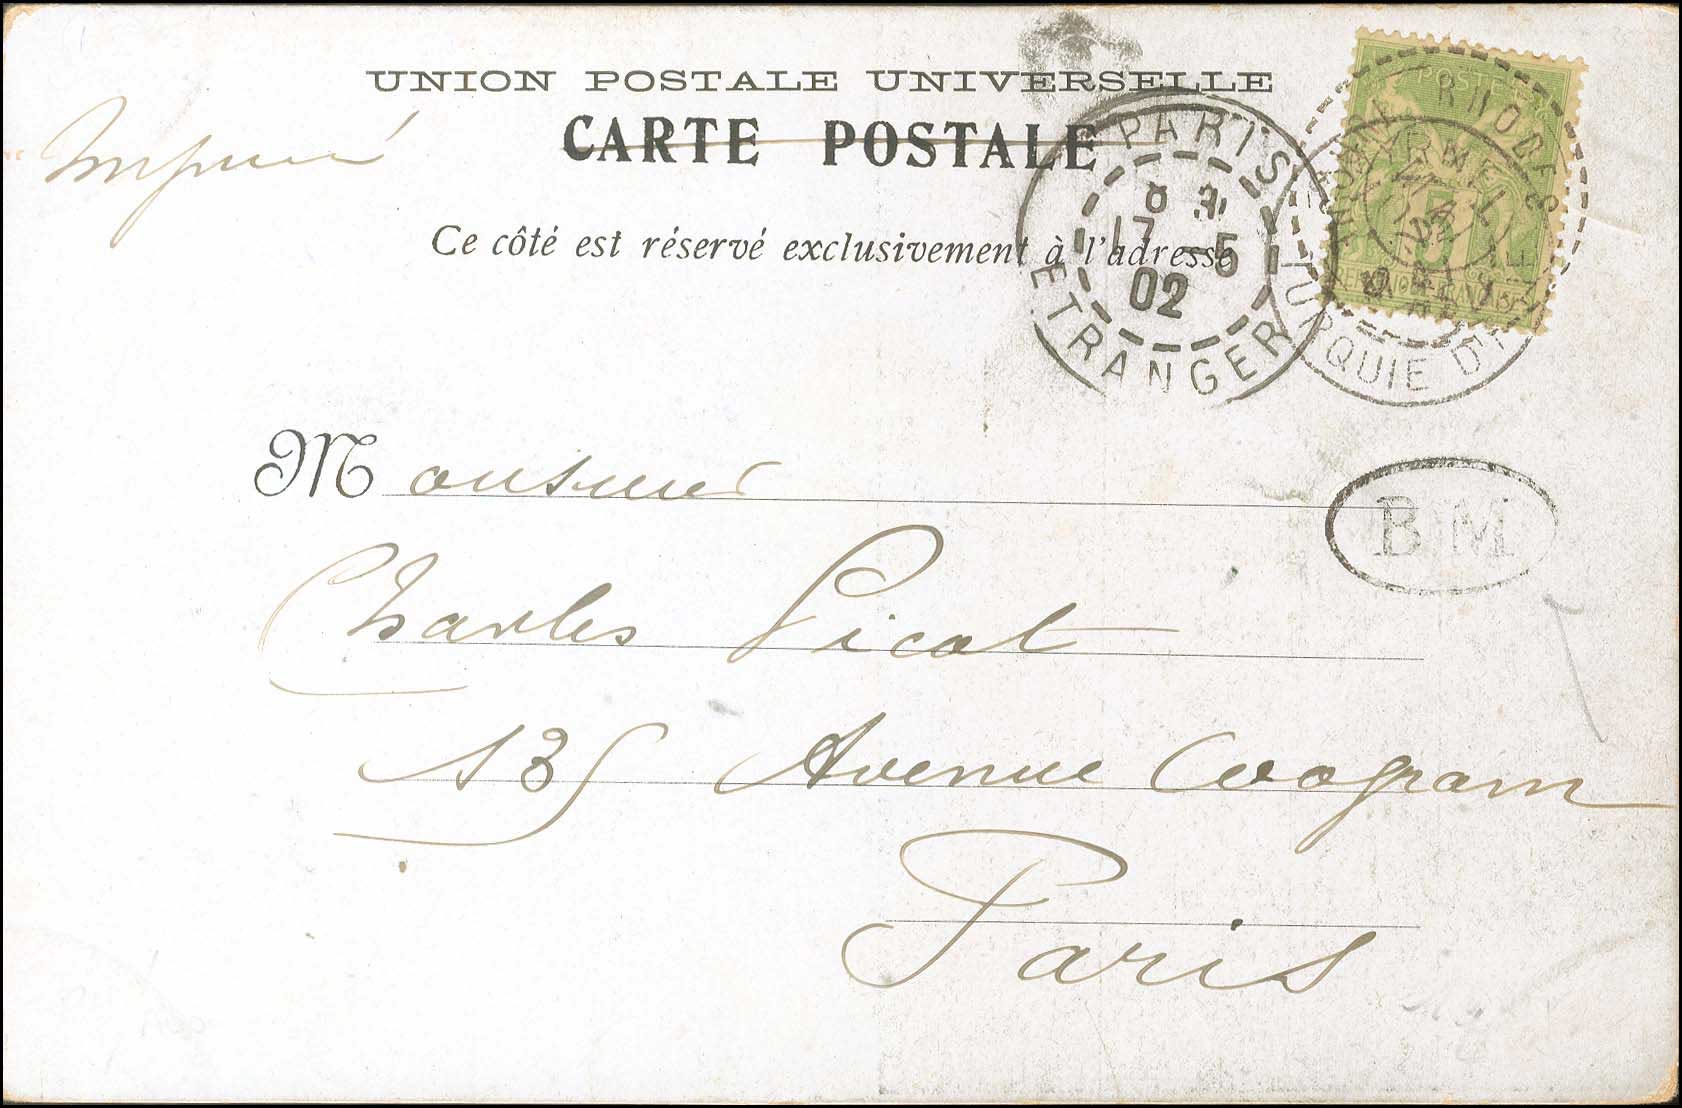 UNION POSTALE UNIVERSELLE
CARTE POSTALE
Imprimé
Ce côté est réservé exclusivement à l'adresse
PARIS
17 -5
02
ETRANGER
POSTE
RHODES
TURQUIE D'
BM
Monsieur
Charles Picot
135 Avenue Wagram
Paris